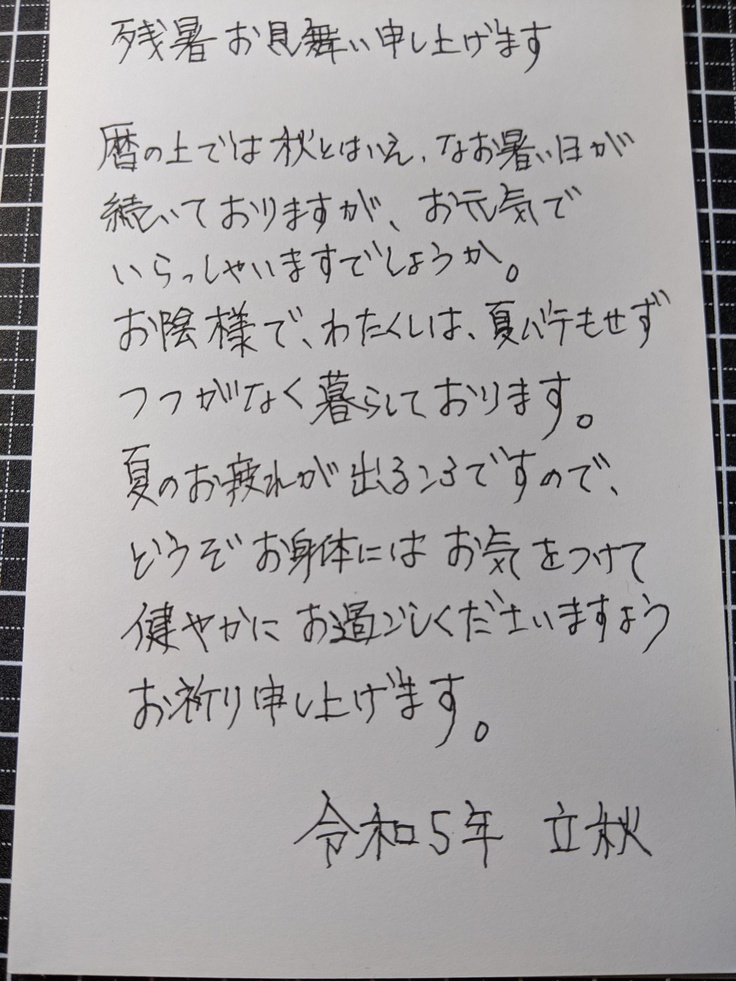 残暑お見舞い申し上げます
暦の上では秋とはいえ、なお暑い日が
続いておりますが、お元気で
いらっしゃいますでしょうか。
お陰様で、わたくしは、夏バテもせず
つつがなく暮らしております。
夏のお疲れが出るころですので、
どうぞお身体にはお気をつけて
健やかにお過ごしくださいますよう
お祈り申し上げます。
令和5年 立秋